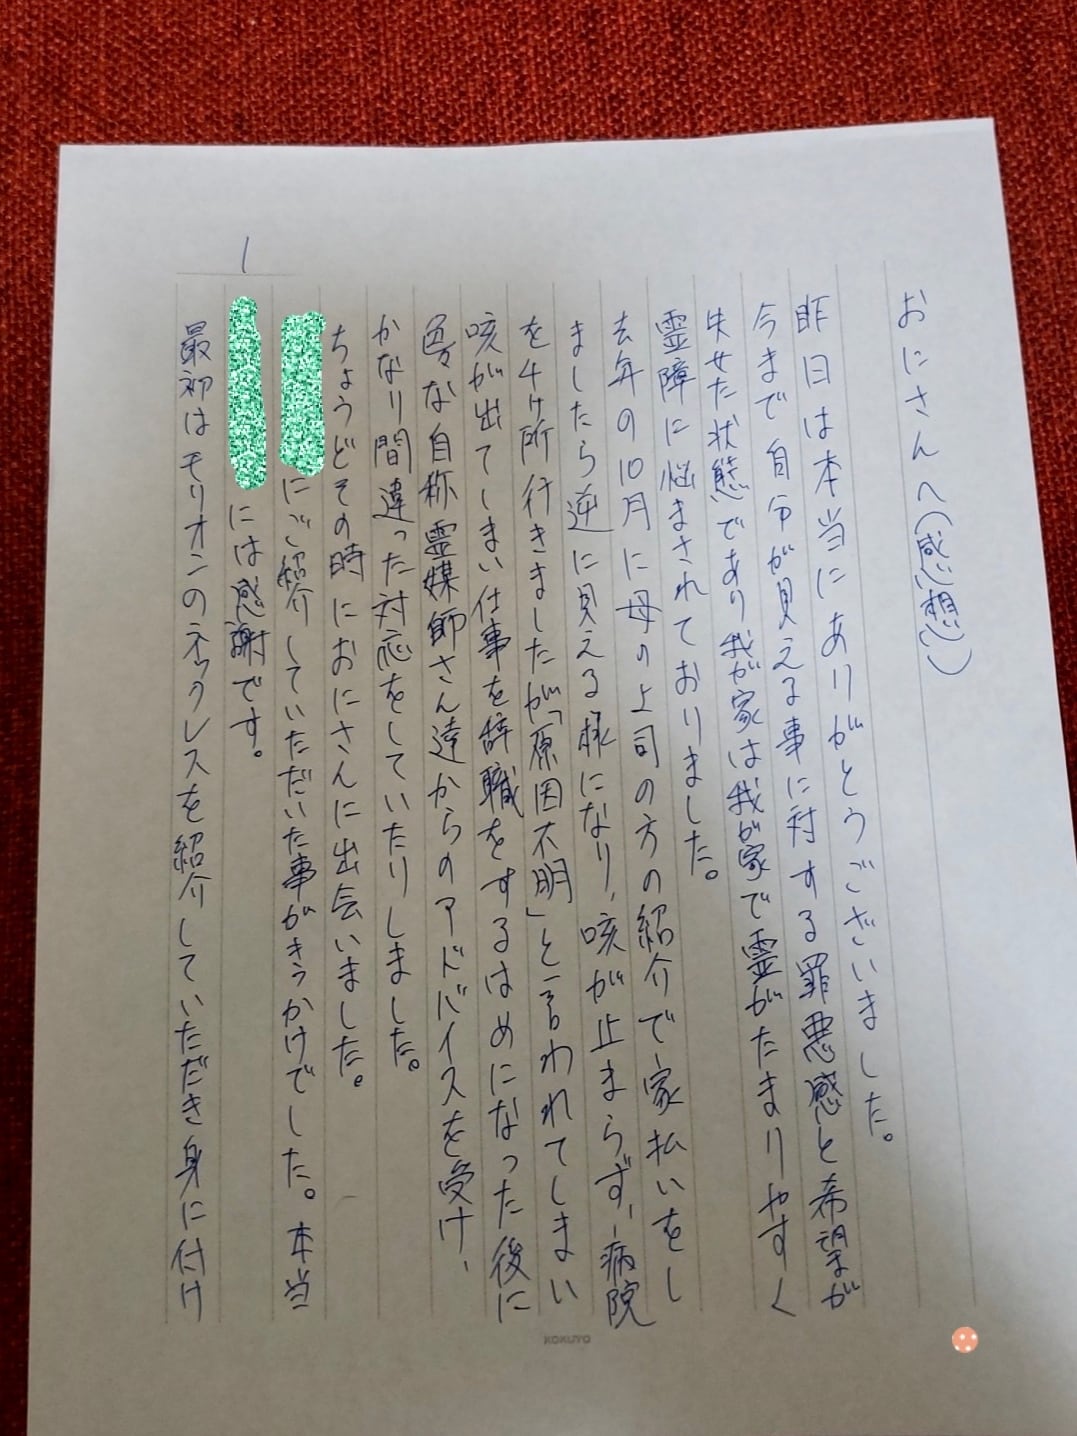 おにさんへ(感想)
昨日は本当にありがとうございました。
今まで自分が見える事に対する罪悪感と希望が
失せた状態であり我が家は我が家で霊がたまりやすく
霊障に悩まされておりました。
去年の10月に母の上司の方の紹介で家払いをし
ましたら逆に見える様になり、咳が止まらず、病院
を4ヶ所行きましたが「原因不明」と言われてしまい
咳が出てしまい仕事を辞職をするはめになった後に
色々な自称霊媒師さん達からのアドバイスを受け、
かなり間違った対応をしていたりしました。
ちょうどその時におにさんに出会いました。
にご紹介していただいた事がきっかけでした。本当
には感謝です。
最初はモリオンのネックレスを紹介していただき身に付け
1
KOKUYO